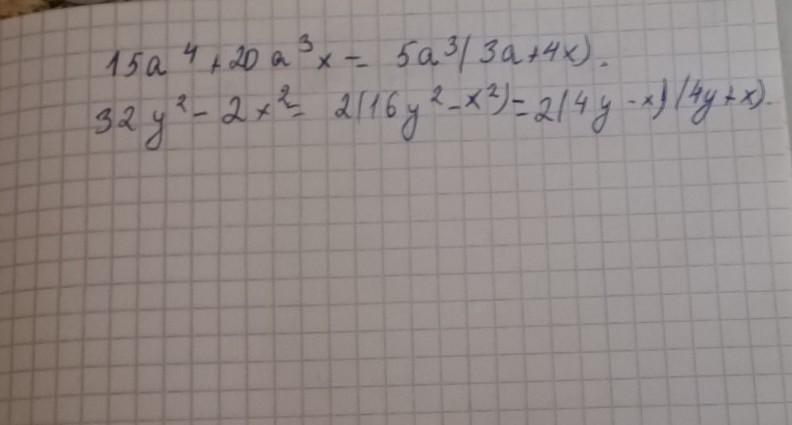 15a⁴+20a³x= 5a³(3a+4x).
32y²-2x²= 2(16y²-x²)=2(4y-x)(4y+x).